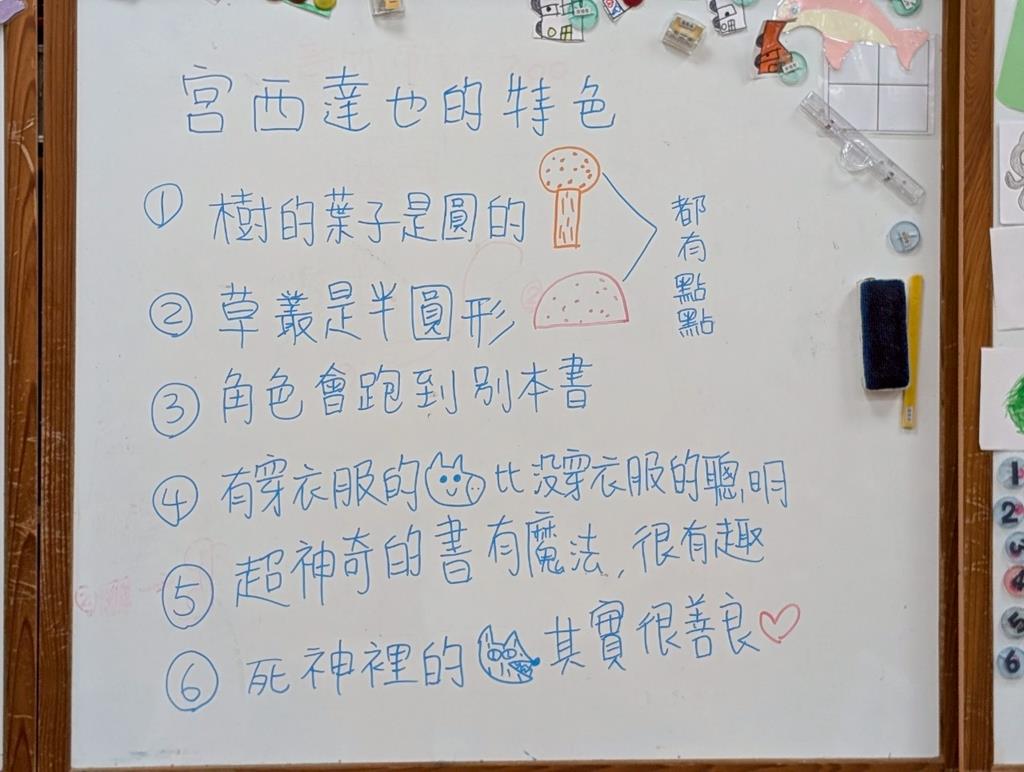 宮西達也的特色
① 樹的葉子是圓的
都有點點
② 草叢是半圓形
③ 角色會跑到別本書
④ 有穿衣服的比沒穿衣服的聰明
⑤ 超神奇的書有魔法,很有趣
⑥ 死神裡的其實很善良
1
2
3
4
5
6